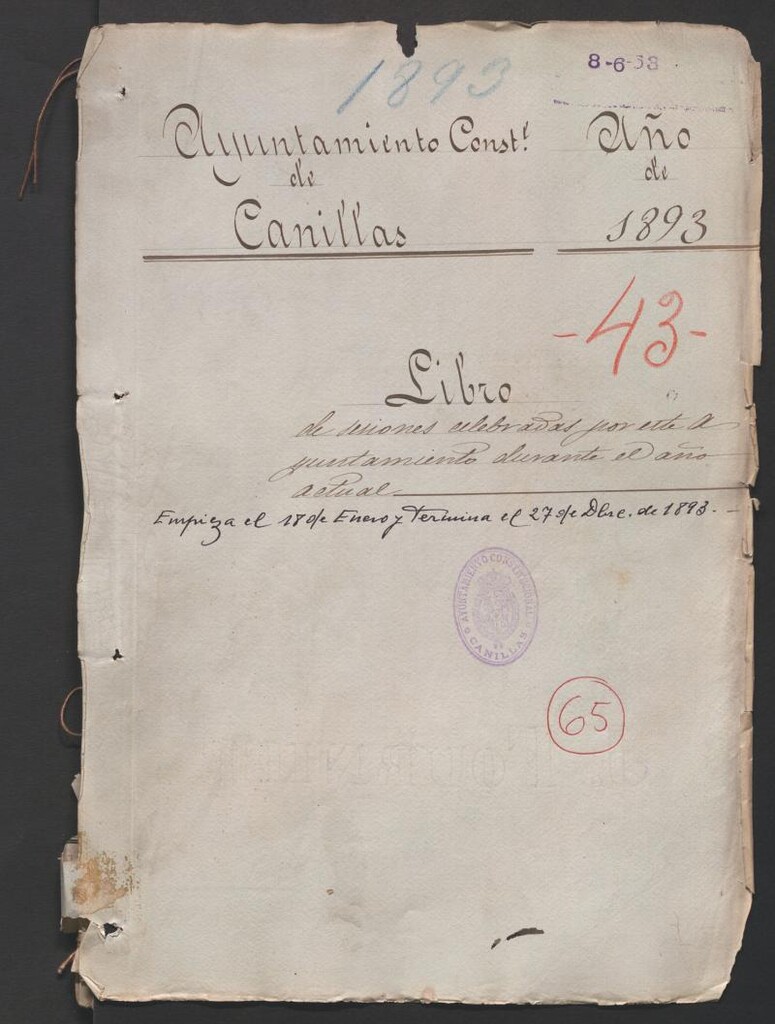 1893
8-6-53
Ayuntamiento Const.l
de
Canillas
Año
de
1893
-43-
Libro
de sesiones celebradas por este A
yuntamiento durante el año
actual.
Empieza el 18 de Enero y Termina el 27 de Dbre. de 1893.-
AYUNTAMIENTO CONSTITUCIONAL
DE
CANILLAS
65